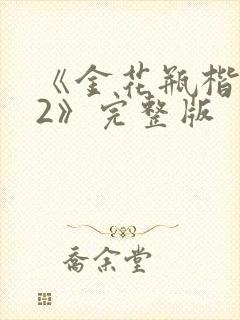 《金花瓶楷
2》完整版
喬余堂